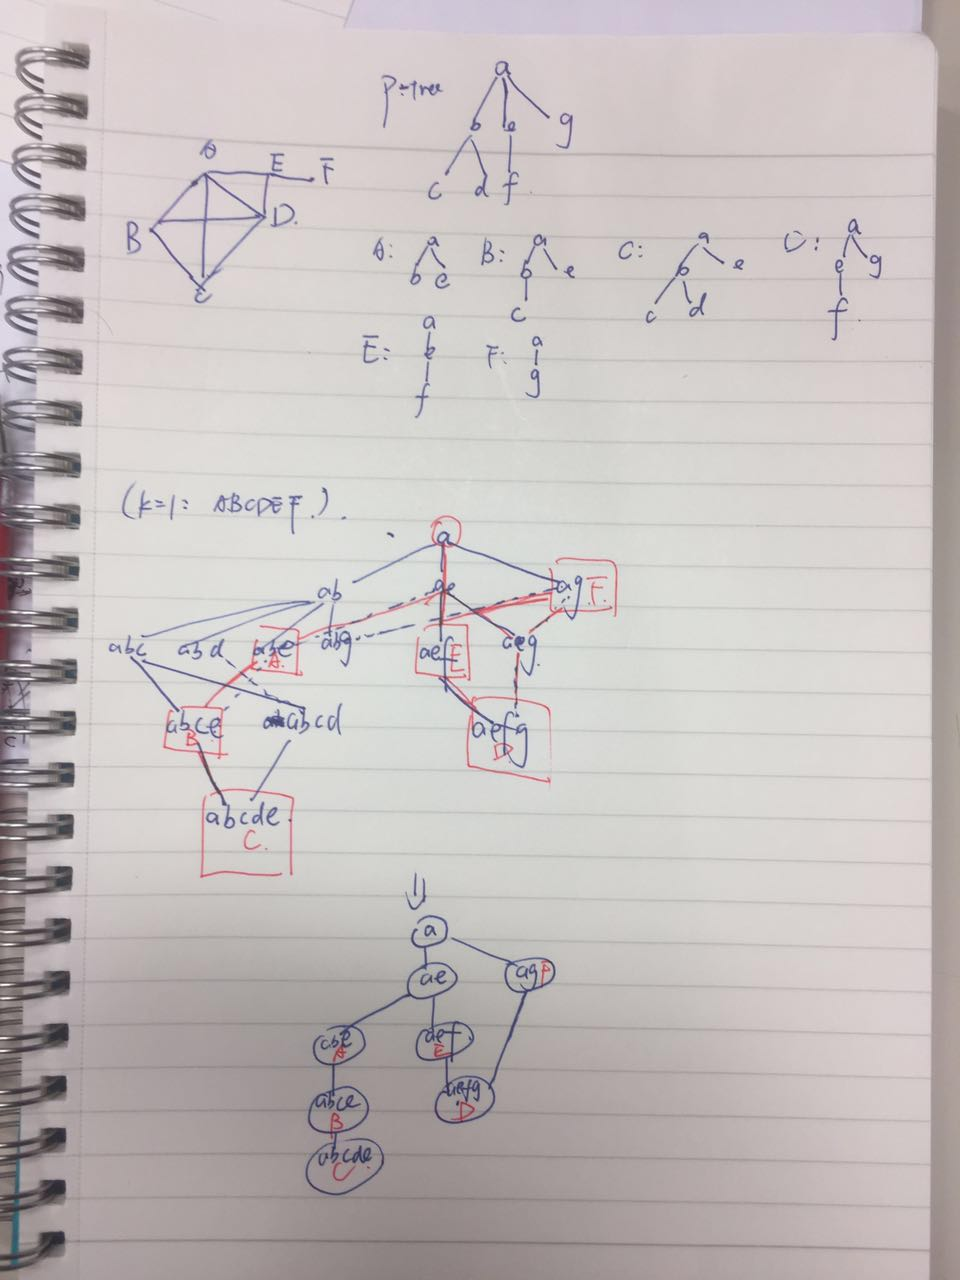 P-tree
a
b e g
c d f
A E F
B D.
C
A: a B: a C: a D: a
b e b e b e e g
c c d f
E: a F: a
e g
f
(k=1: ABCDEF.).
a
ab ae ag F.
abc abd abe abg aef E aeg
A.
abce abcd aefg
B D
abcde
C.
⇓
a
ae ag F
abe aef
A E
abce aefg
B D
abcde
C